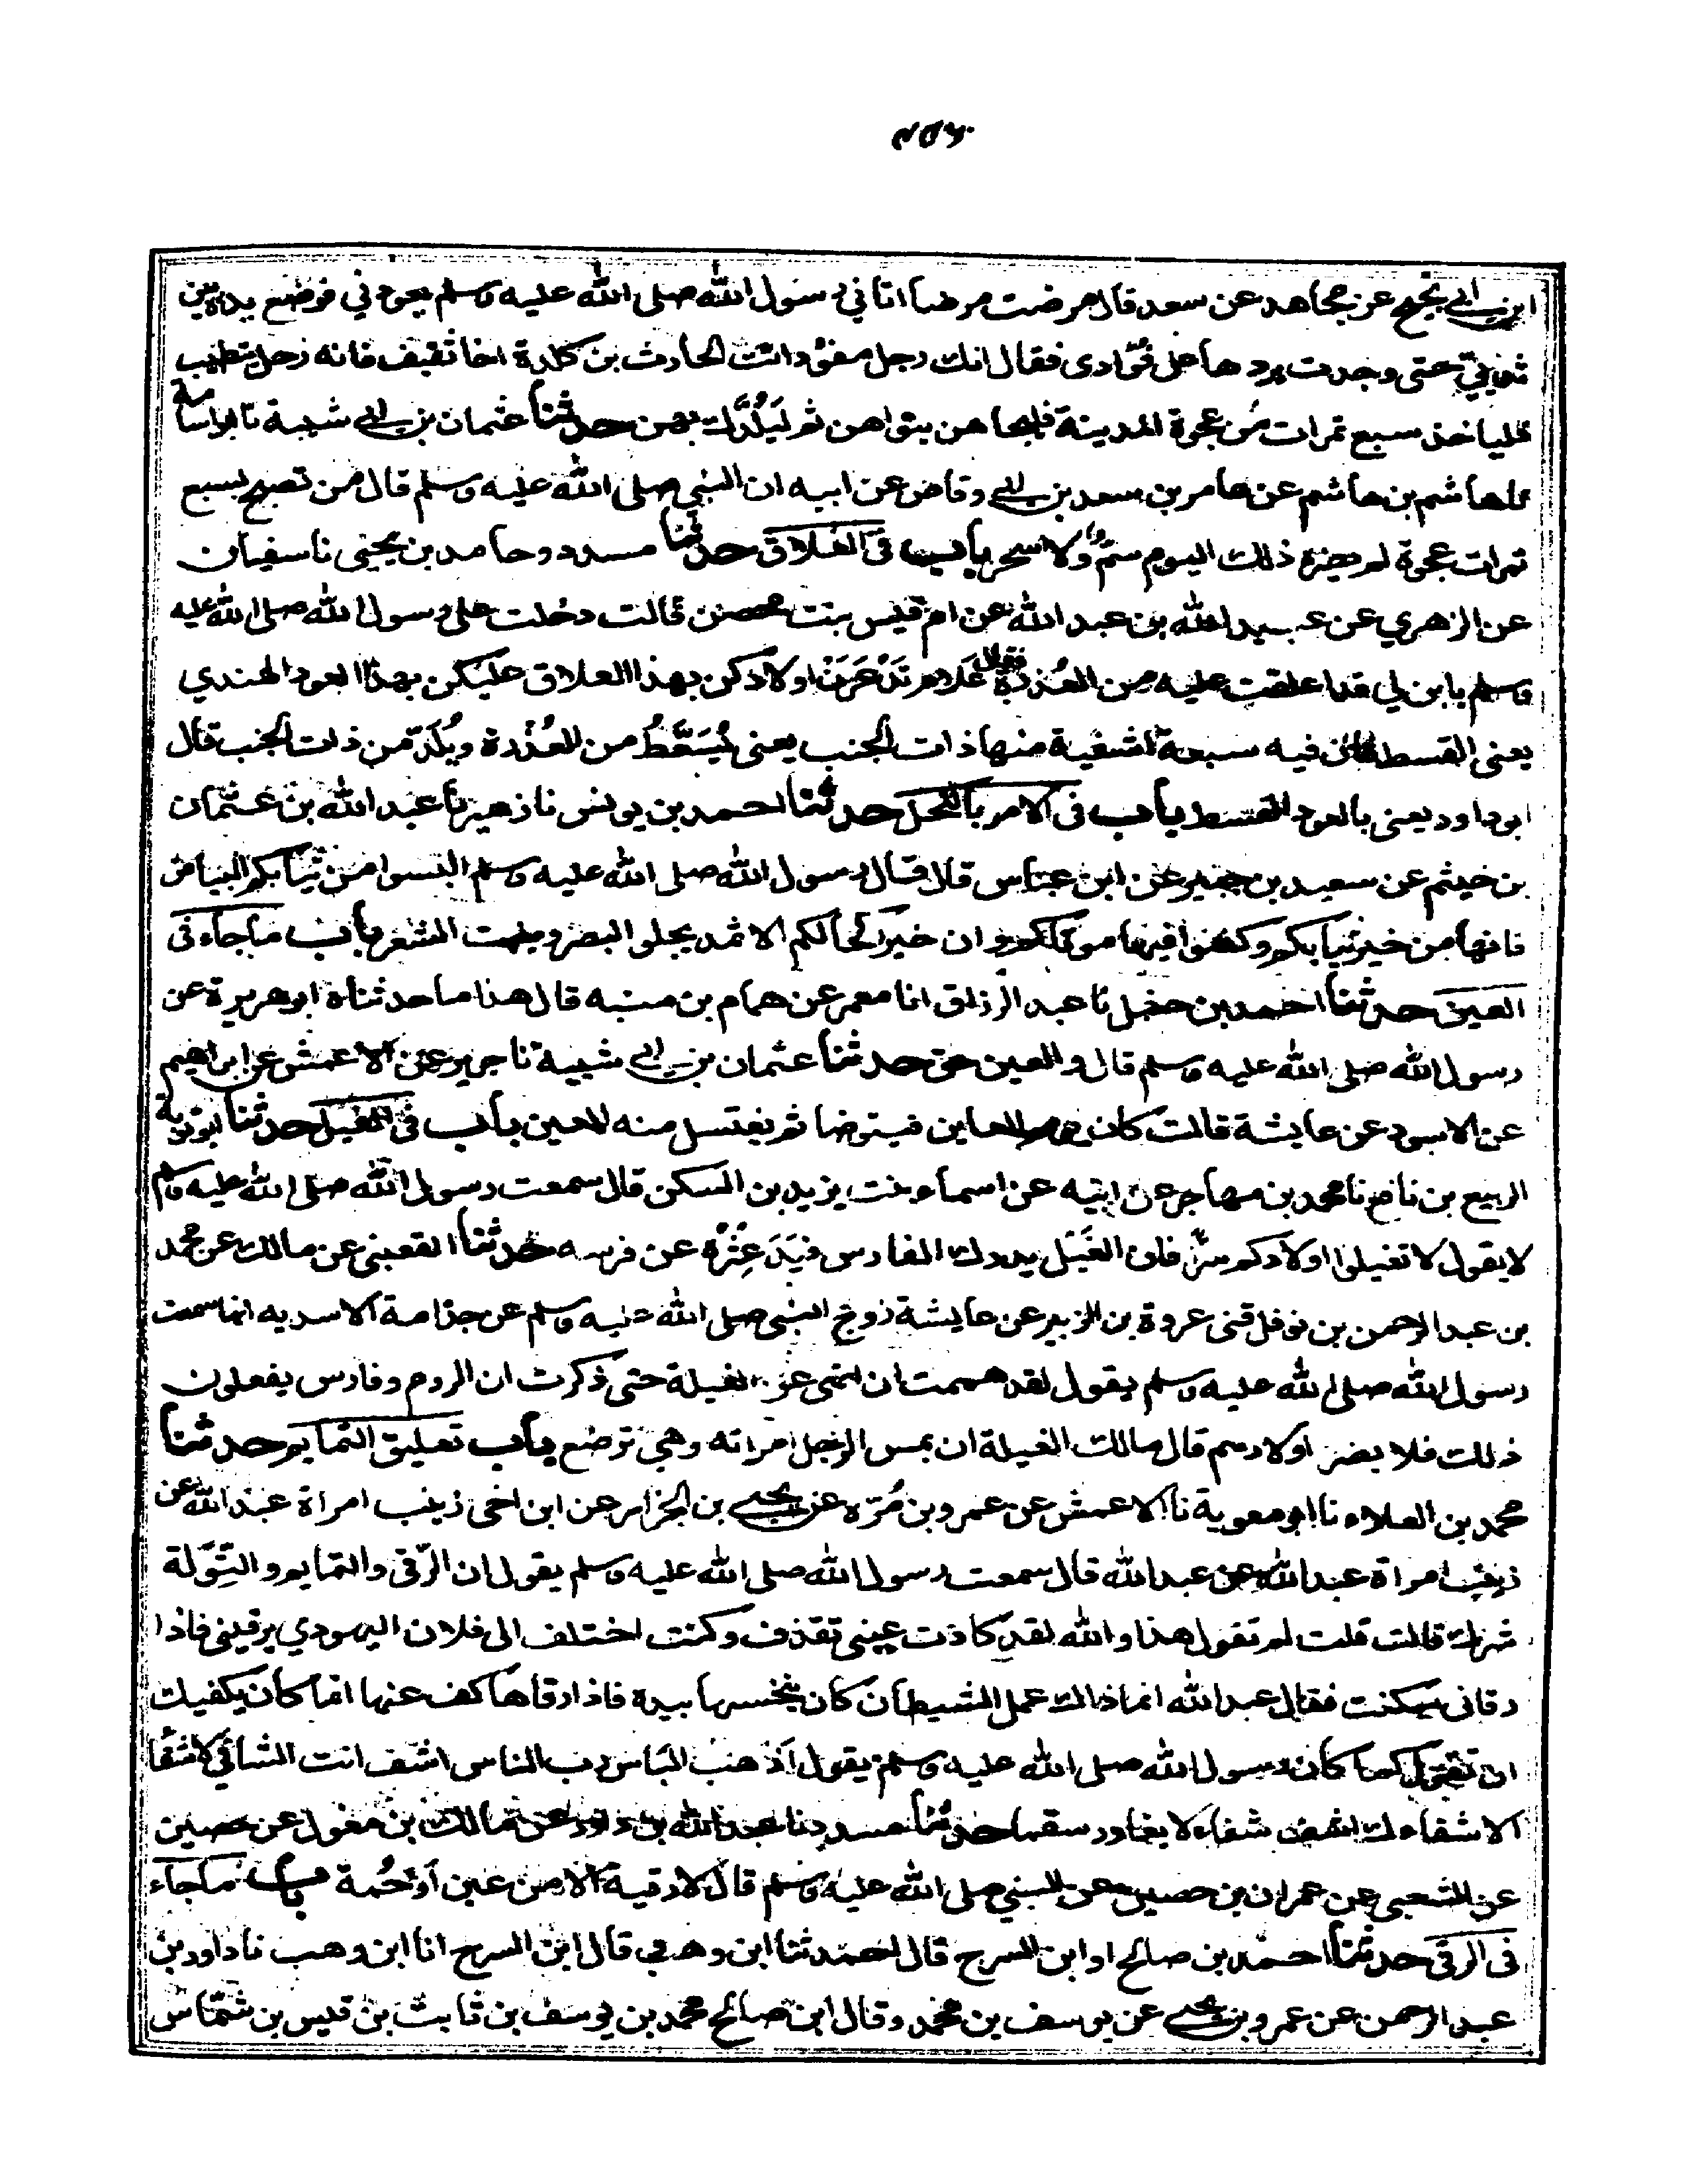 ابن ابي نجيح عن مجاهد عن سعد قال مرضت مرضا اتاني رسول الله صلى الله عليه وسلم يعودني فوضع يده بين
ثديي حتى وجدت بردها على فؤادى فقال انك رجل مفؤد ائت الحارث بن كلدة اخا ثقيف فانه رجل يتطبب
فلياخذ سبع تمرات من عجوة المدينة فليجاهن بنواهن ثم ليلدك بهن حدثنا عثمان بن ابي شيبة نا ابو اسامة
نا هاشم بن هاشم عن عامر بن سعد بن ابي وقاص عن ابيه ان النبي صلى الله عليه وسلم قال من تصبح بسبع
تمرات عجوة لم يضره ذلك اليوم سم ولا سحر باب فى العلاق حدثنا مسدد وحامد بن يحيى نا سفيان
عن الزهري عن عبيد الله بن عبد الله عن ام قيس بنت محصن قالت دخلت على رسول الله صلى الله عليه
وسلم بابن لي قد اعلقت عليه من العذرة فقال علام تدغرن اولادكن بهذا العلاق عليكن بهذا العود الهندي
يعنى القسط فان فيه سبعة اشفية منها ذات الجنب يعنى يُسَعَّطُ من العُذْرة ويُلَدّ من ذات الجنب قال
ابوداود يعنى بالعود القسط باب فى الامر بالكحل حدثنا احمد بن يونس نا زهير نا عبد الله بن عثمان
بن خيثم عن سعيد بن جبير عن ابن عباس قال قال رسول الله صلى الله عليه وسلم البسوا من ثيابكم البياض
فانها من خير ثيابكم وكفنوا فيها موتاكم وان خير اكحالكم الاثمد يجلو البصر وينبت الشعر باب ماجاء فى
العين حدثنا احمد بن حنبل نا عبد الرزاق انا معمر عن همام بن منبه قال هذا ما حدثناه ابو هريرة عن
رسول الله صلى الله عليه وسلم قال والعين حق حدثنا عثمان بن ابي شيبة نا جرير عن الاعمش عن ابراهيم
عن الاسود عن عايشة قالت كان يومر العاين فيتوضا ثم يغتسل منه المعين باب فى الغيل حدثنا ابو توبة
الربيع بن نافع نا محمد بن مهاجر عن ابيه عن اسماء بنت يزيد بن السكن قال سمعت رسول الله صلى الله عليه وسلم
لا يقول لا تغيلوا اولادكم سرّ فان الغَيَل يدرك الفارس فيَدَعثِرُه عن فرسه حدثنا القعنبى عن مالك عن محمد
بن عبد الرحمن بن نوفل قنى عروة بن الزبير عن عايشة زوج النبى صلى الله عليه وسلم عن جذامة الاسديه انها سمعت
رسول الله صلى الله عليه وسلم يقول لقد هممت ان انهى عن الغيلة حتى ذكرت ان الروم وفارس يفعلون
ذلك فلا يضر اولادهم قال مالك الغيلة ان يمس الرجل امراته وهى ترضع باب تعليق التمايم حدثنا
محمد بن العلاء نا ابو معوية نا الاعمش عن عمرو بن مُرّه عن يحيى بن الجزار عن ابن اخى زينب امراة عبد الله عن
زينب امراة عبد الله عن عبد الله قال سمعت رسول الله صلى الله عليه وسلم يقول ان الرّقى والتمايم والتِّوَلة
شرك قالت قلت لم تقول هذا والله لقد كادت عينى تقذف وكنت اختلف الى فلان اليهودي يرقينى فاذا
رقانى سكنت فقال عبد الله انما ذاك عمل الشيطان كان ينخسها بيده فاذا رقاها كف عنها انما كان يكفيك
ان تقول كما كان رسول الله صلى الله عليه وسلم يقول اذهب الباس رب الناس اشف انت الشافي لا شفا
الا شفاءك اشف شفاء لا يغادر سقما حدثنا مسدد نا عبد الله بن داود عن مالك بن مغول عن حصين
عن الشعبى عن عمران بن حصين عن النبي صلى الله عليه وسلم قال لا رقية الا من عين أو حُمة باب ماجاء
فى الرقى حدثنا احمد بن صالح او ابن السرح قال احمد ثنا ابن وهب قال ابن السرح انا ابن وهب نا داود بن
عبد الرحمن عن عمرو بن يحيى عن يوسف بن محمد وقال ابن صالح محمد بن يوسف بن ثابت بن قيس بن شماس